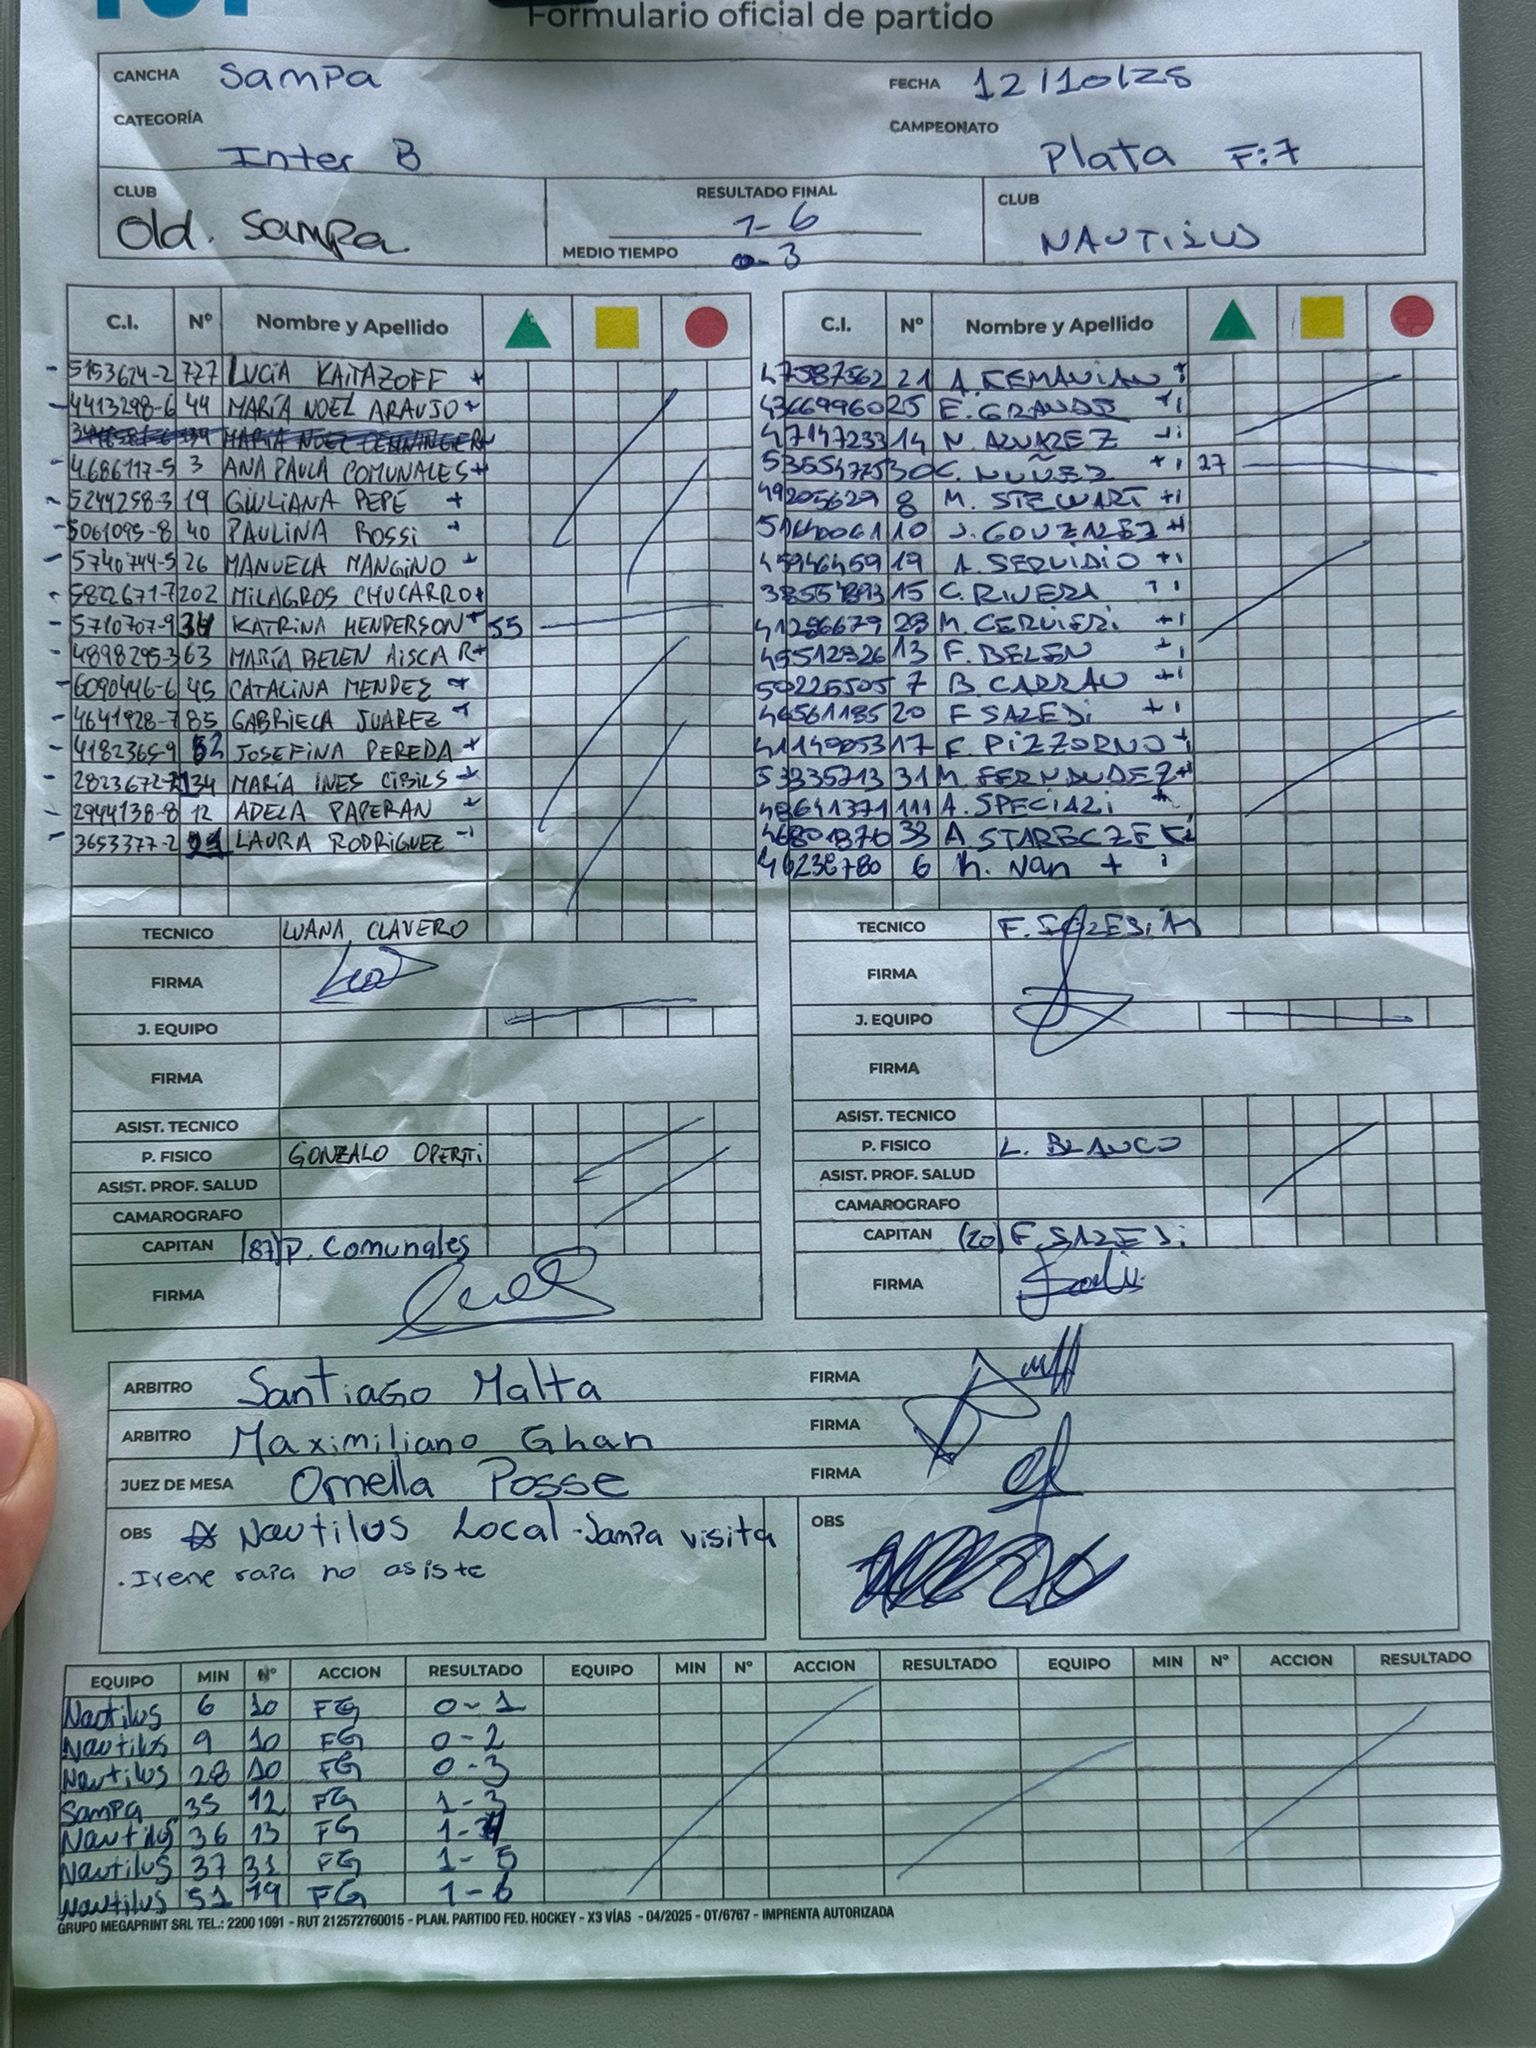 Formulario oficial de partido
CANCHA Sampa FECHA 12/10/25
CATEGORÍA Inter B CAMPEONATO Plata F:7
CLUB Old. Sampa RESULTADO FINAL 1-6 CLUB NAUTILUS
MEDIO TIEMPO 0-3
C.I. Nº Nombre y Apellido C.I. Nº Nombre y Apellido
5153624-2 777 LUCIA KAITAZOFF + 47587562 21 A. KEMANIAN +
4413298-6 44 MARÍA NOEL ARAUJO + 43669960 25 E. GRANDE +
47147233 14 N. ALVAREZ
4.686117-5 3 ANA PAULA COMUNALES + 53654725 30 C. NUÑEZ + 27
5244258-3 19 GIULIANA PEPE + 49205629 8 M. STEWART +
5061095-8 40 PAULINA ROSSI + 51640061 10 J. GONZALEZ +
5740744-5 26 MANUELA MANGINO + 45946459 19 A. SERVIDIO +
5822671-7 202 MILAGROS CHUCARRO + 15 C. RIVERA
5710707-9 34 KATRINA HENDERSON + 55 41286679 28 M. CERVIERI +
4898295-3 63 MARÍA BELEN AISCAR + 45512326 13 F. BELEN +
6090446-6 45 CATALINA MENDEZ + 50225505 7 B. CARRAU +
4641928-7 85 GABRIELA JUAREZ + 46561185 20 F SALEDI +
4182365-9 52 JOSEFINA PEREDA + 41149053 17 F. PIZZORNO +
2823672- 134 MARÍA INES CIBILS + 53335213 31 M. FERNANDEZ +
2944138-8 12 ADELA PAPERAN + 48641371 111 A. SPECIALI
3653377-2 LAURA RODRIGUEZ 46801870 33 A STARECZEK
46238780 6 N. Nan +
TECNICO LUANA CLAVERO TECNICO
FIRMA FIRMA
J. EQUIPO J. EQUIPO
FIRMA FIRMA
ASIST. TECNICO ASIST. TECNICO
P. FISICO GONZALO OPERTI P. FISICO L. BLANCO
ASIST. PROF. SALUD ASIST. PROF. SALUD
CAMAROGRAFO CAMAROGRAFO
CAPITAN (87) P. Comunales CAPITAN (20) F. SALEDI
FIRMA FIRMA
ARBITRO Santiago Malta FIRMA
ARBITRO Maximiliano Ghan FIRMA
JUEZ DE MESA Ornella Posse FIRMA
OBS Nautilus Local - Sampa visita OBS
. Irene rapa no asiste
EQUIPO MIN Nº ACCION RESULTADO EQUIPO MIN Nº ACCION RESULTADO EQUIPO MIN Nº ACCION RESULTADO
Nautilus 6 10 FG 0-1
Nautilus 9 10 FG 0-2
Nautilus 28 10 FG 0-3
Sampa 35 12 FG 1-3
Nautilus 36 13 FG 1-4
Nautilus 37 31 FG 1-5
Nautilus 51 19 FG 1-6
GRUPO MEGAPRINT SRL TEL.: 2200 1091 - RUT 212572760015 - PLAN. PARTIDO FED. HOCKEY - X3 VÍAS - 04/2025 - OT/6767 - IMPRENTA AUTORIZADA